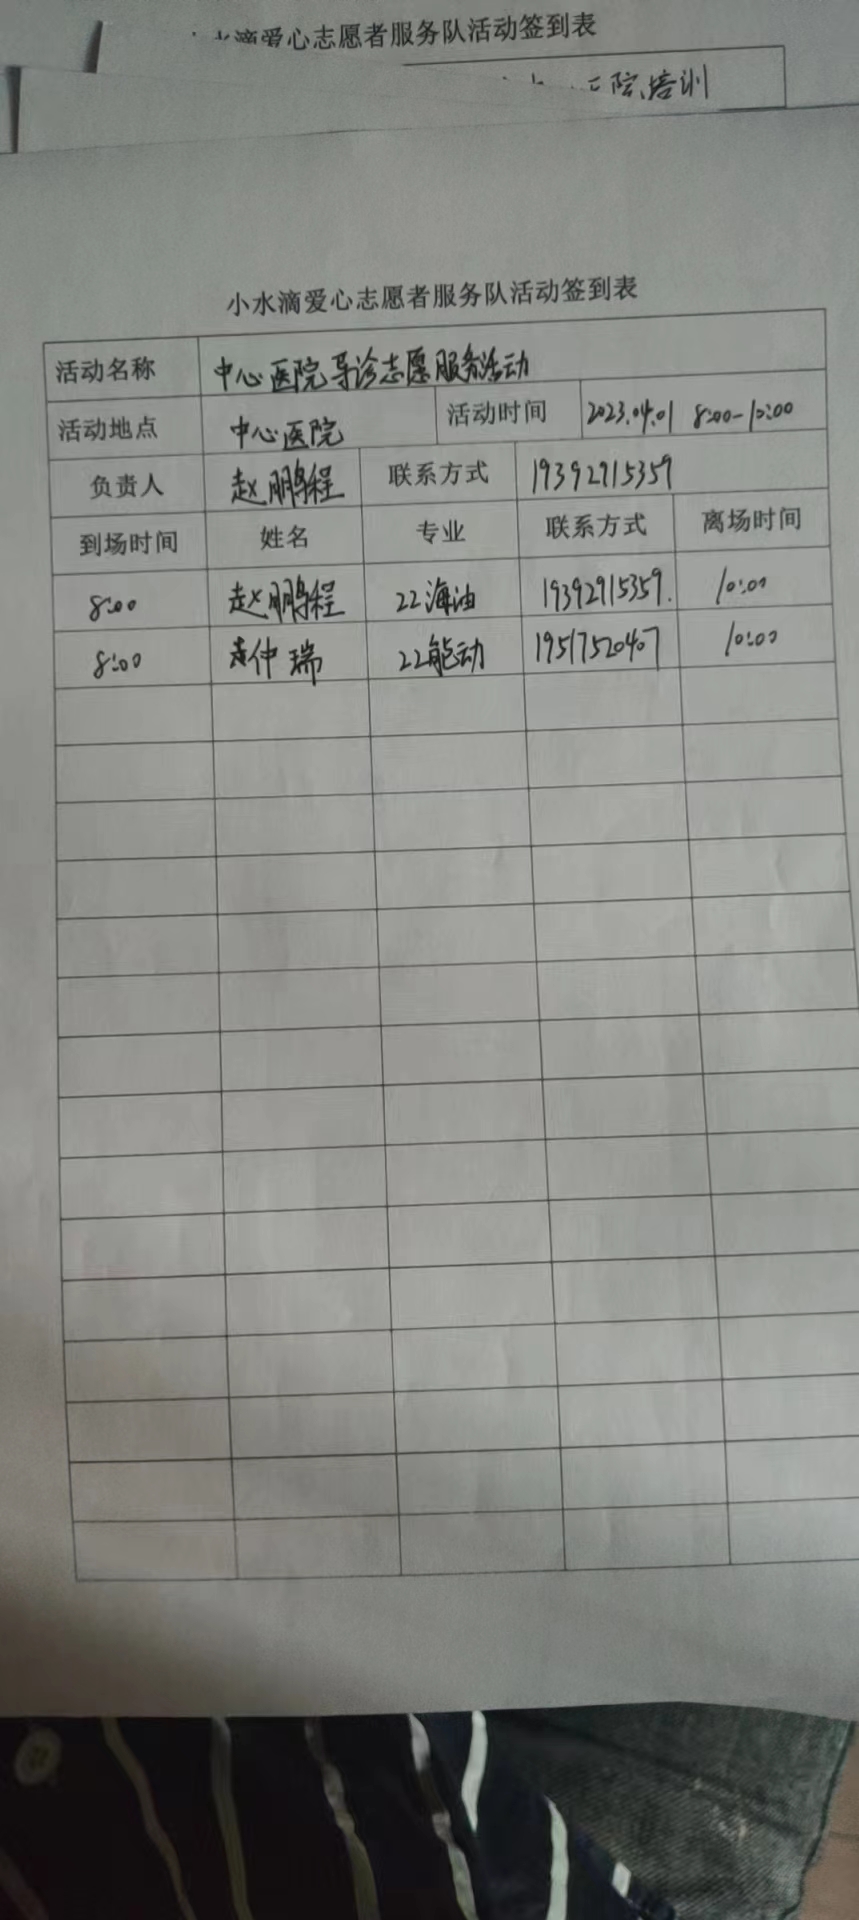 小水滴爱心志愿者服务队活动签到表
院培训
小水滴爱心志愿者服务队活动签到表
活动名称 中心医院导诊志愿服务活动
活动地点 中心医院 活动时间 2023.04.01 8:00-10:00
负责人 赵鹏程 联系方式 19392915359
到场时间 姓名 专业 联系方式 离场时间
8:00 赵鹏程 22海油 19392915359. 10:00
8:00 仲瑞 22能动 19517520407 10:00